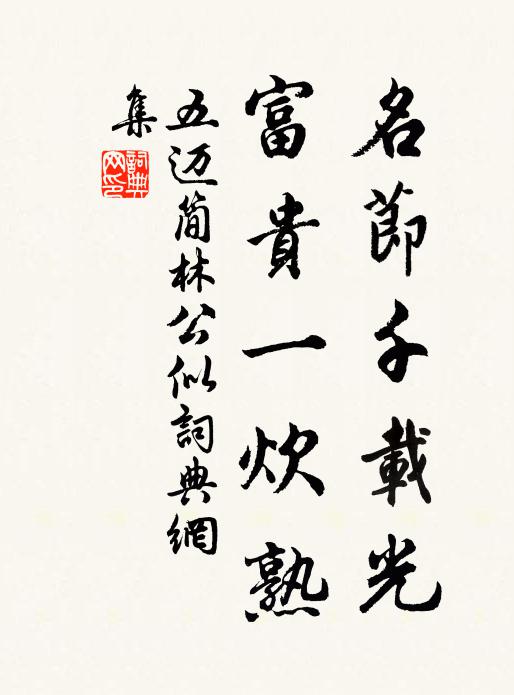 名節千載光
富貴一炊熟
五迈简林公似詞典網
集
詞典
网印